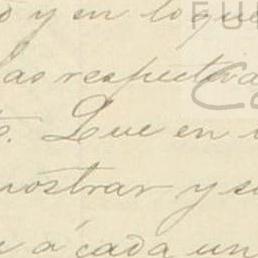 y en lo que
las respectiva
Que en
mostrar y su
á cada un